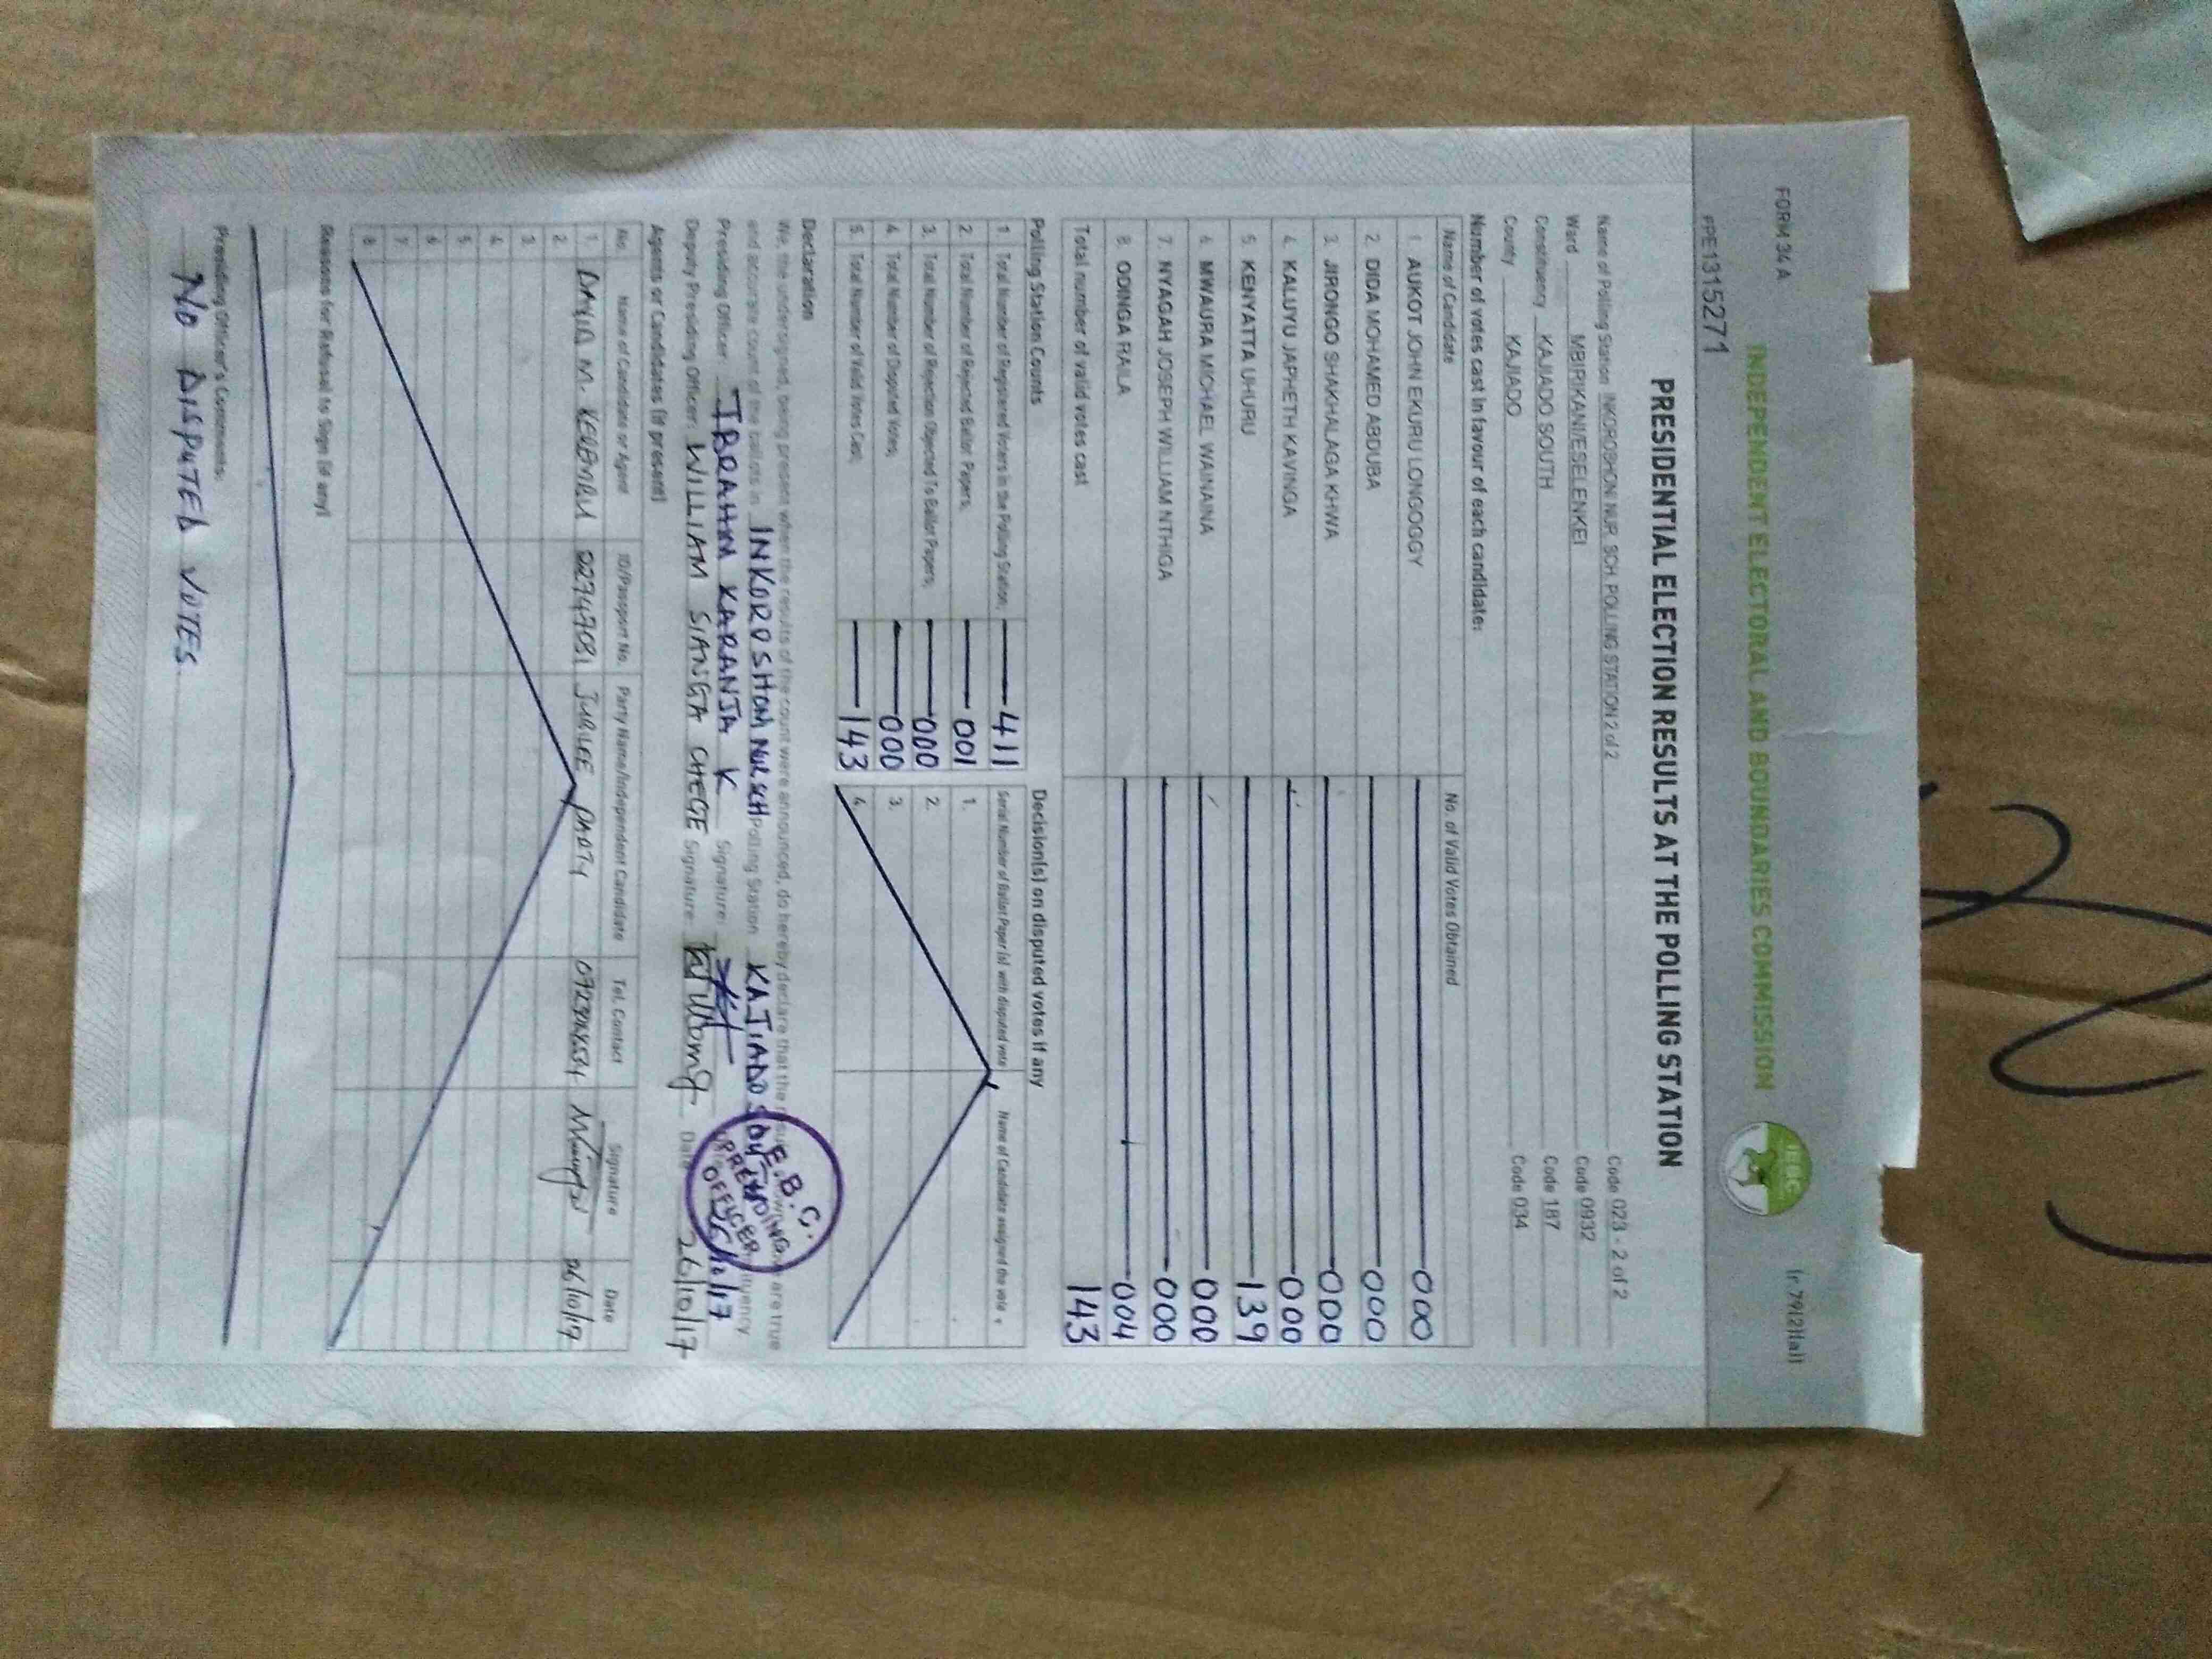 FORM 34 A
(r.79(2)(a))
INDEPENDENT ELECTORAL AND BOUNDARIES COMMISSION
IEBC
PPE1315271
PRESIDENTIAL ELECTION RESULTS AT THE POLLING STATION
Name of Polling Station INKOROSHONI NUR. SCH. POLLING STATION 2 of 2 Code 023 - 2 of 2
Ward MBIRIKANI/ESELENKEI Code 0932
Constituency KAJIADO SOUTH Code 187
County KAJIADO Code 034
Number of votes cast in favour of each candidate:
Name of Candidate No. of Valid Votes Obtained
1. AUKOT JOHN EKURU LONGOGGY 000
2. DIDA MOHAMED ABDUBA 000
3. JIRONGO SHAKHALAGA KHWA 000
4. KALUYU JAPHETH KAVINGA 000
5. KENYATTA UHURU 139
6. MWAURA MICHAEL WAINAINA 000
7. NYAGAH JOSEPH WILLIAM NTHIGA 000
8. ODINGA RAILA 004
Total number of valid votes cast 143
Polling Station Counts
1. Total Number of Registered Voters in the Polling Station; 411
2. Total Number of Rejected Ballot Papers; 001
3. Total Number of Rejection Objected To Ballot Papers; 000
4. Total Number of Disputed Votes; 000
5. Total Number of Valid Votes Cast; 143
Decision(s) on disputed votes if any
Serial Number of Ballot Paper (s) with disputed vote Name of Candidate assigned the vote
1.
2.
3.
4.
Declaration
We, the undersigned, being present when the results of the count were announced, do hereby declare that the are true
and accurate count of the ballots in INKOROSHONI NUR SCH Polling Station KAJIADO SOUTH
Presiding Officer: IBRAHIM KARANJA K Signature:
Deputy Presiding Officer: WILLIAM SIANGA CHEGE Signature: Date 26/10/17
I.E.B.C.
PRESIDING
OFFICER
Agents or Candidates (if present)
No. Name of Candidate or Agent ID/Passport No. Party Name/Independent Candidate Tel. Contact Signature Date
1. DAVID M. 02747081 JUBILEE PARTY 26/10/17
2.
3.
4.
5.
6.
7.
8.
Reasons for Refusal to Sign (if any)
Presiding Officer's Comments:
NO DISPUTED VOTES.